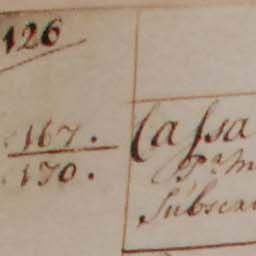 126
167.
170.
Caſsa
P.ª M
Subscri